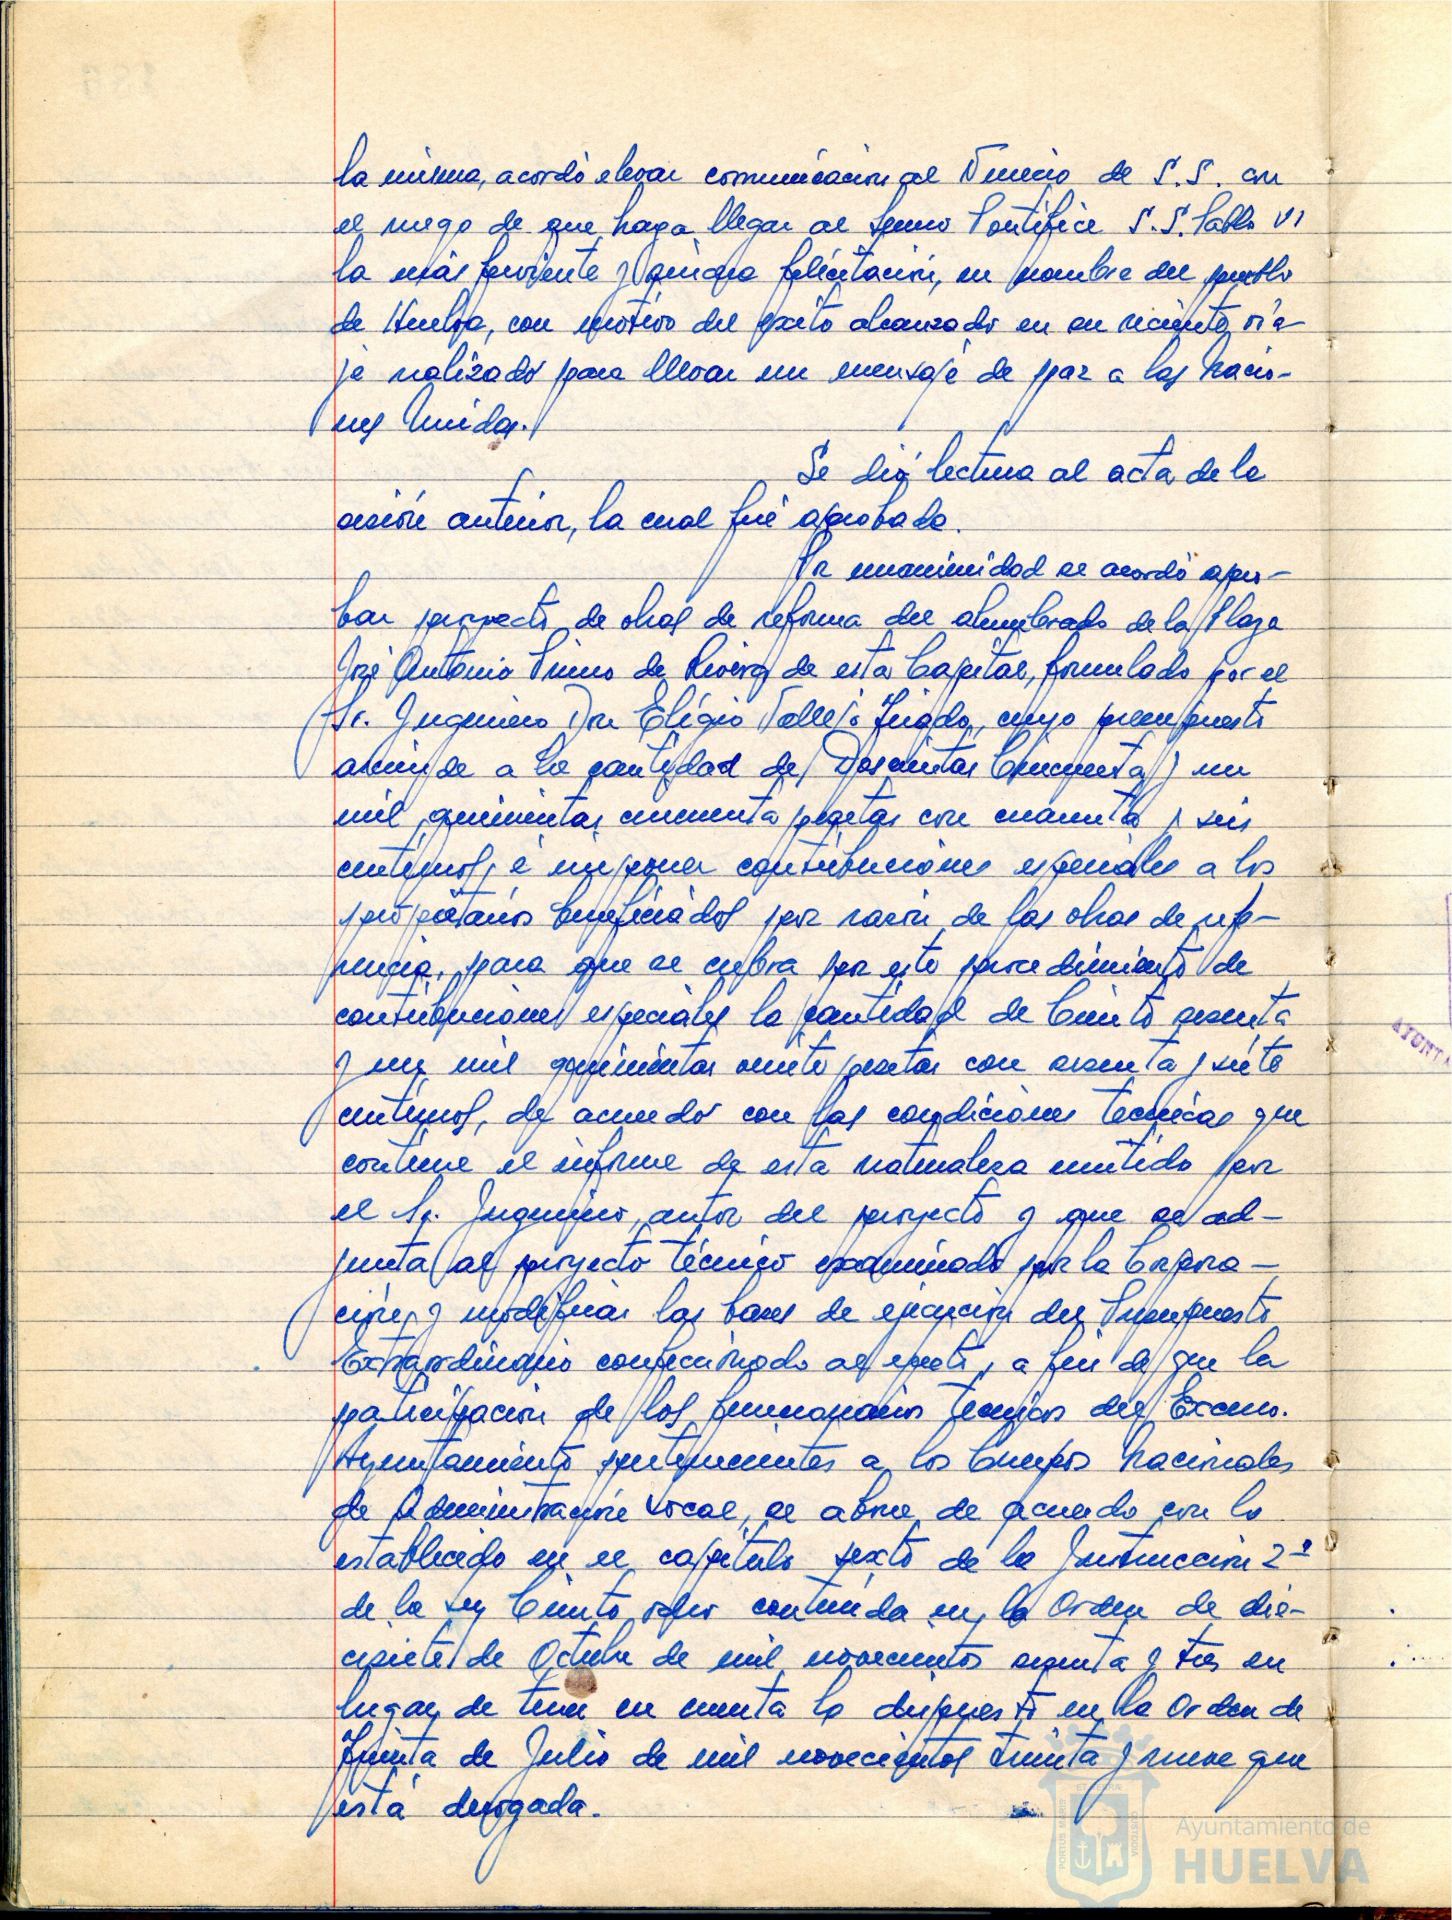 la misma, acordó elevar comunicación al Nuncio de S.S. con
el ruego de que haga llegar al Sumo Pontífice S.S. Pablo VI
la más ferviente y sincera felicitación, en nombre del pueblo
de Huelva, con motivo del éxito alcanzado en su reciente via-
je realizado para llevar un mensaje de paz a las Nacio-
nes Unidas.
Se dió lectura al acta de la
sesión anterior, la cual fué aprobada.
Por unanimidad se acordó apro-
bar proyecto de obras de reforma del alumbrado de la Plaza
José Antonio Primo de Rivera de esta Capital, formulado por el
Sr. Ingeniero Don Eligio Vallejo cuyo presupuesto
asciende a la cantidad de Doscientas Cincuenta y un
mil quinientas cincuenta pesetas con cuarenta y seis
centimos, é imponer contribuciones especiales a los
propietarios beneficiados por razón de las obras de refe-
rencia, para que se cubra por este procedimiento de
contribuciones especiales la cantidad de Ciento sesenta
y un mil quinientas veinte pesetas con sesenta y siete
centimos, de acuerdo con las condiciones tecnicas que
contiene el informe de esta naturaleza emitido por
el Sr. Ingeniero, autor del proyecto y que se ad-
junta al proyecto técnico examinado por la Corpora-
ción, y modificar las bases de ejecución del Presupuesto
Extraordinario confeccionado al efecto, a fin de que la
participación de los funcionarios tecnicos del Excmo.
Ayuntamiento pertenecientes a los Cuerpos Nacionales
de Administración Local, se abone de acuerdo con lo
establecido en el capitulo sexto de la Instrucción 2ª
de la Ley Ciento ocho contenida en la Orden de die-
cisiete de Octubre de mil novecientos sesenta y tres en
lugar de tener en cuenta lo dispuesto en la Orden de
Treinta de Julio de mil novecientos treinta y nueve que
está derogada.
AYUNTA
PORTUS MARIS
CUSTODIA
Ayuntamiento de
HUELVA